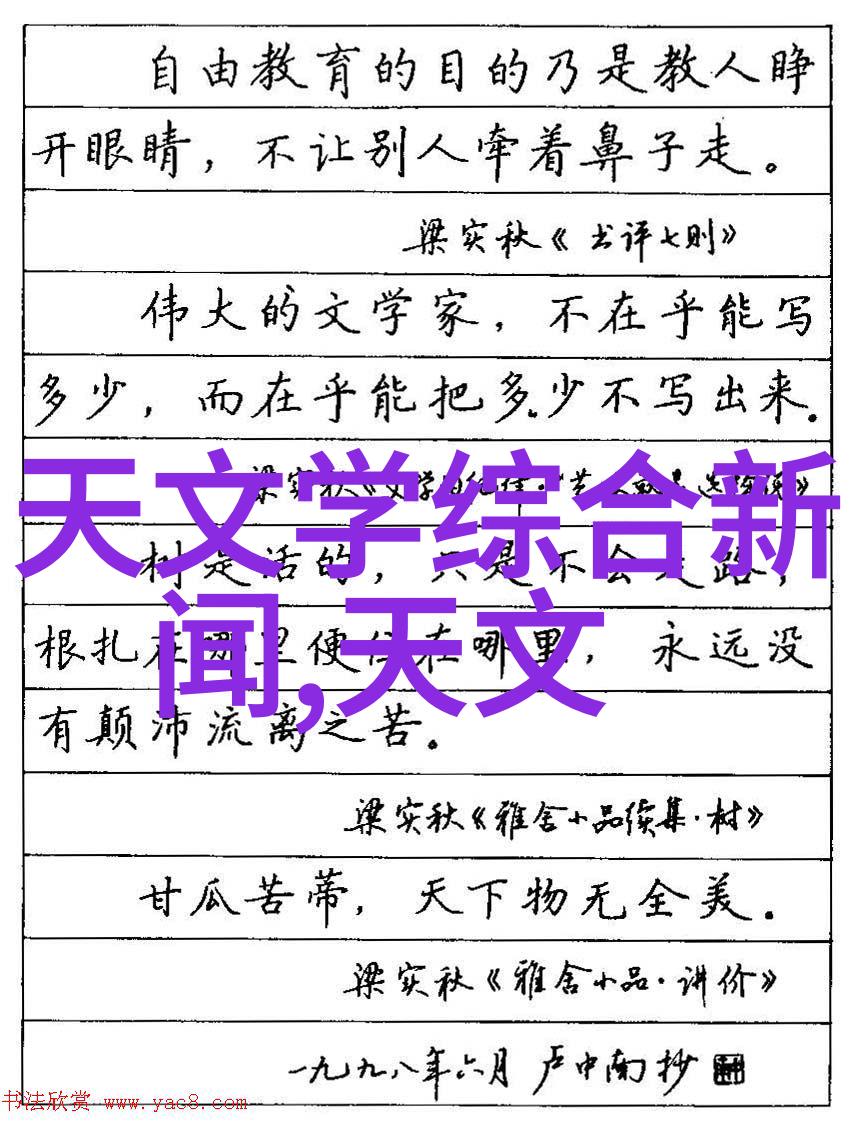 自由教育的目的乃是教人睁
开眼睛，不让别人牵着鼻子走。
梁实秋《书评七则》
伟大的文学家，不在乎能写
多少，而在乎能把多少不写出来.
天文学综合新
闻,天文
梁实秋《文学
树是活的，只是不会 路，
根扎在哪里便住在哪里，永远没
有颠沛流离之苦。
梁实秋《雅舍小品续集·树》
甘瓜苦蒂，天下物无全美.
梁实秋《雅舍小品·讲价》
一九九八年六月 卢中南抄
书法欣赏 www.yac8.com